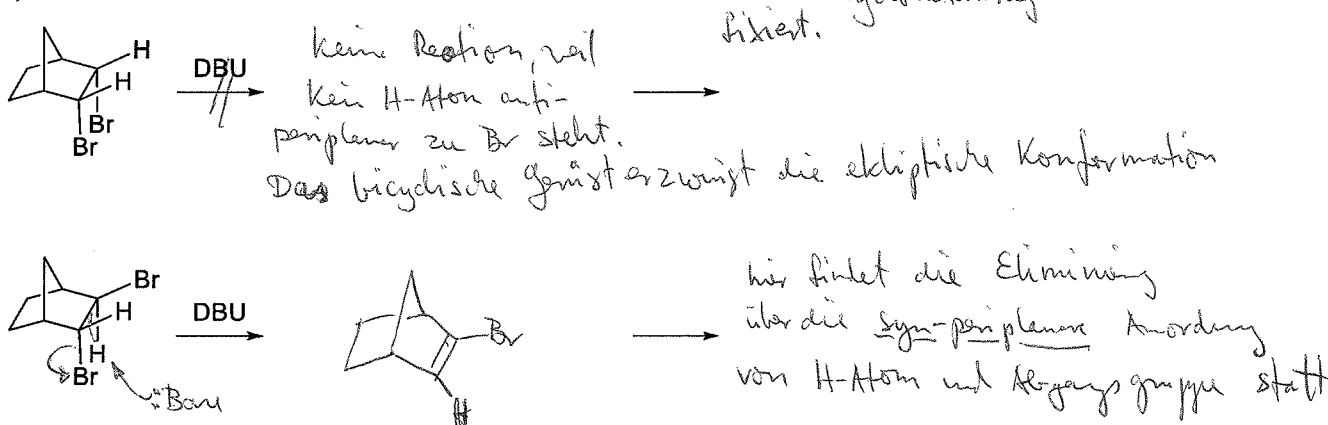 fixiert.
H
H
Br
Br
DBU
keine Reaktion, weil
kein H-Atom anti-
periplanar zu Br steht.
Das bicyclische Gerüst erzwingt die ekliptische Konformation
Br
H
H
Br
:Base
DBU
Br
H
hier findet die Eliminierung
über die syn-periplanare Anordnung
von H-Atom und Abgangsgruppe statt